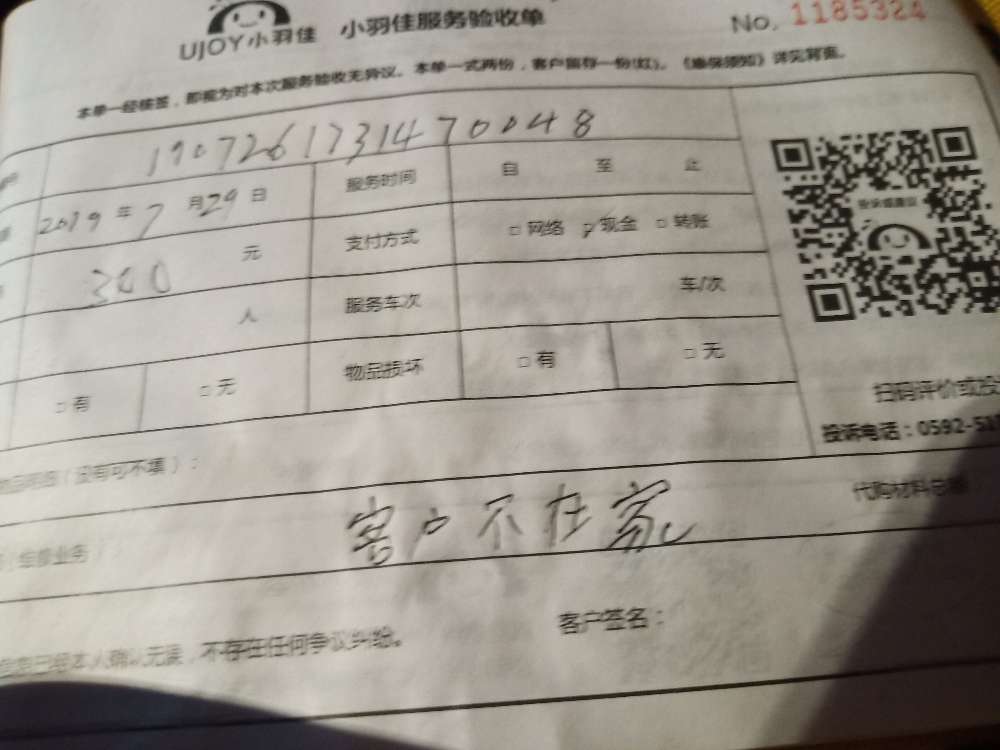 UJOY小羽佳 小羽佳服务验收单 No. 1185324
本单一经核签，即视为对本次服务验收无异议。本单一式两份，客户留存一份(红)。《维保须知》详见背面。
19072617314470048
2019年7月29日 服务时间 自 至 止
300 元 支付方式 □网络 ☑现金 □转账
人 服务车次 车/次
□有 □无 物品损坏 □有 □无
扫码评价或投
投诉电话：0592-5
（没有可不填）：
代购材料
客户不在家
维修业务
客户签名：
已经本人确认无误，不存在任何争议纠纷。